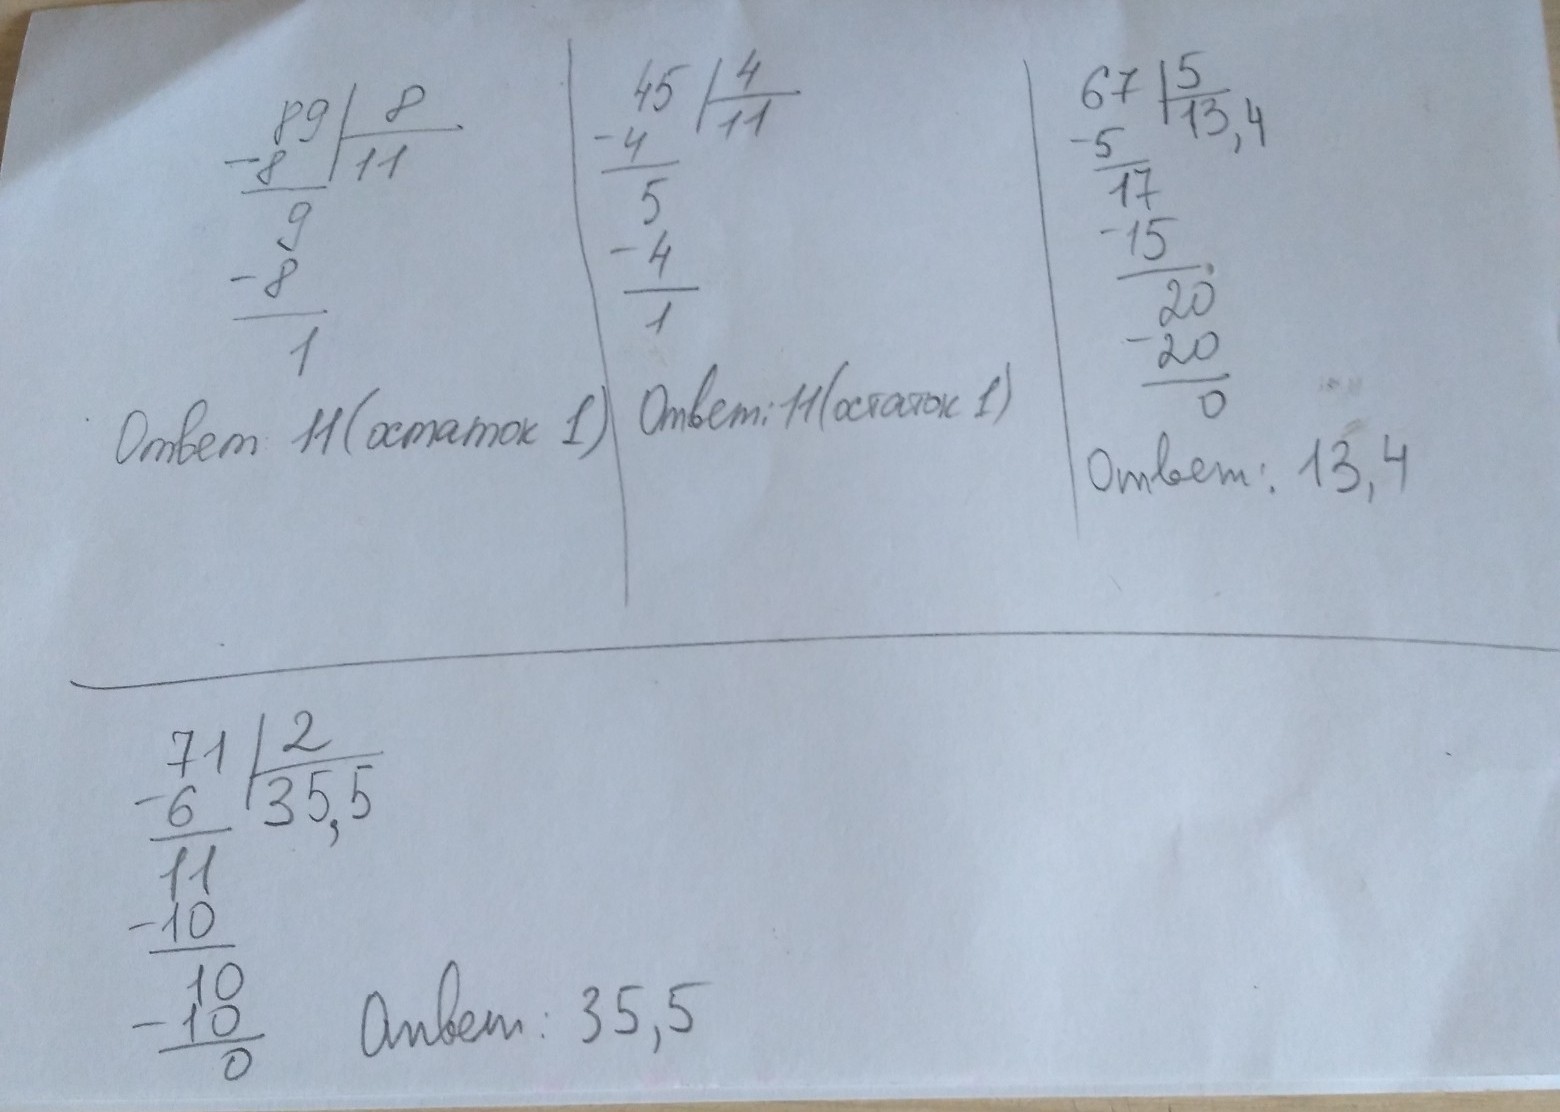 89 8
-8 11
9
-8
1
Ответ: 11(остаток 1)
45 4
-4 11
5
-4
1
Ответ: 11(остаток 1)
67 5
-5 13,4
17
-15
20
-20
0
Ответ: 13,4
71 2
-6 35,5
11
-10
10
-10
0
Ответ: 35,5